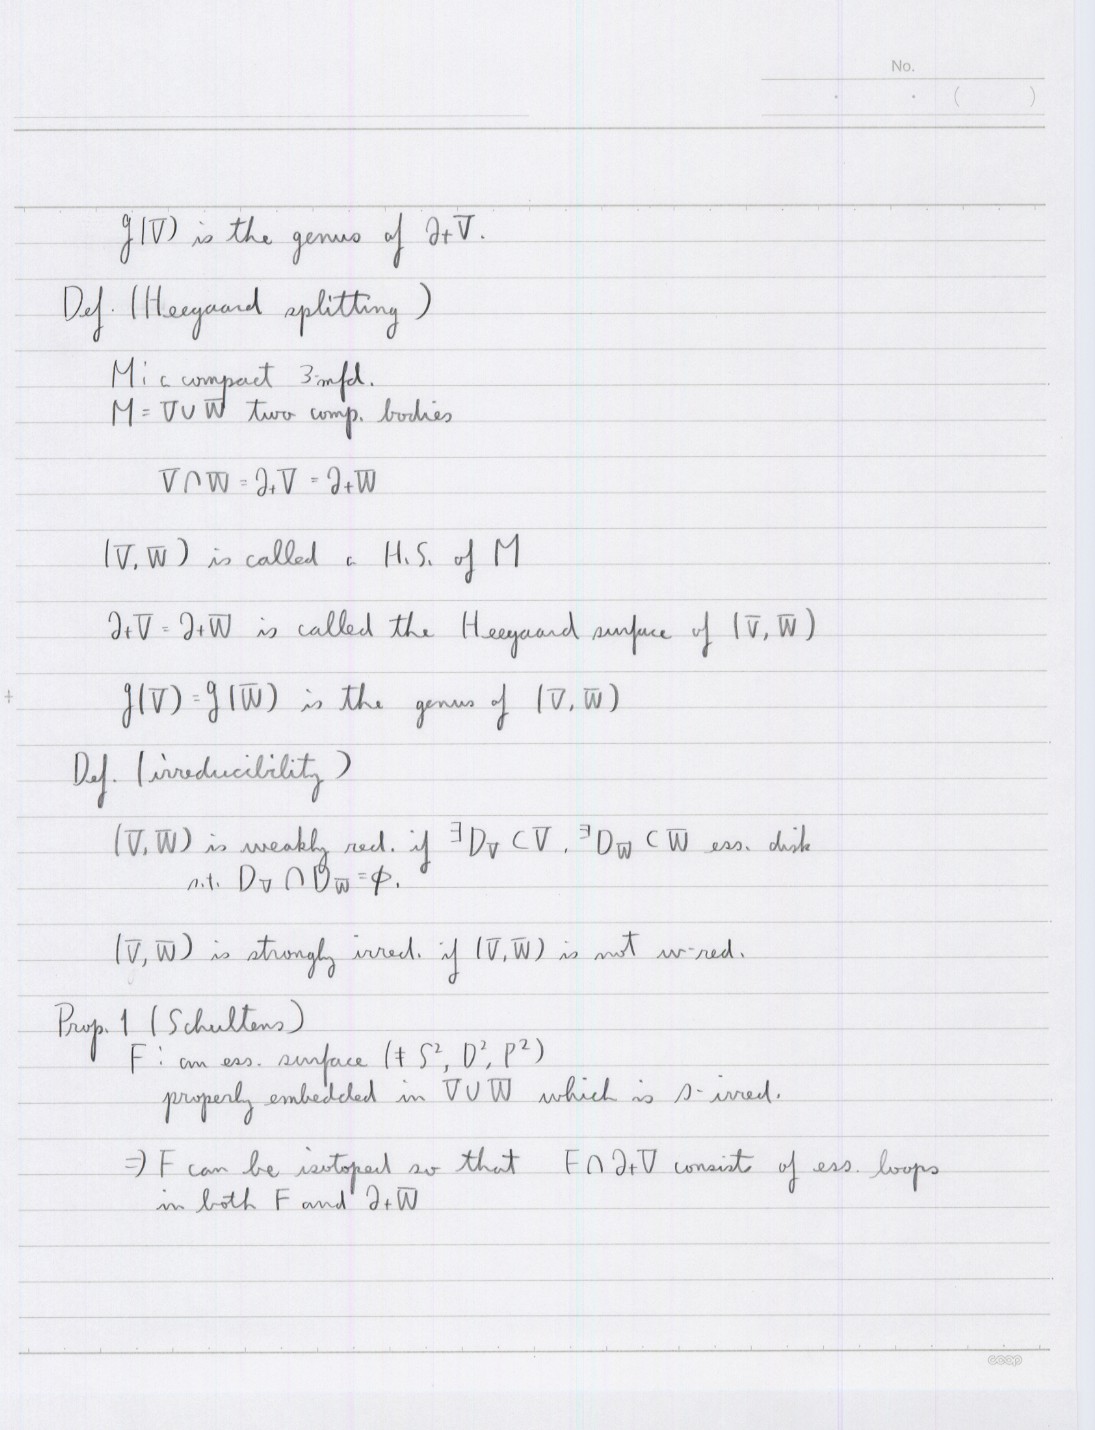 No.
( )
g(V) is the genus of ∂+V.
Def. (Heegaard splitting)
M : a compact 3-mfd.
M = V∪W two comp. bodies
V∩W = ∂+V = ∂+W
(V, W) is called a H.S. of M
∂+V = ∂+W is called the Heegaard surface of (V, W)
g(V) = g(W) is the genus of (V, W)
Def. (irreducibility)
(V, W) is weakly red. if ∃D_V ⊂ V, ∃D_W ⊂ W ess. disk
s.t. D_V ∩ D_W = φ.
(V, W) is strongly irred. if (V, W) is not w-red.
Prop. 1 (Schultens)
F : an ess. surface (≠ S², D², P²)
properly embedded in V∪W which is s-irred.
⇒ F can be isotoped so that F∩∂+V consists of ess. loops
in both F and ∂+W
coop